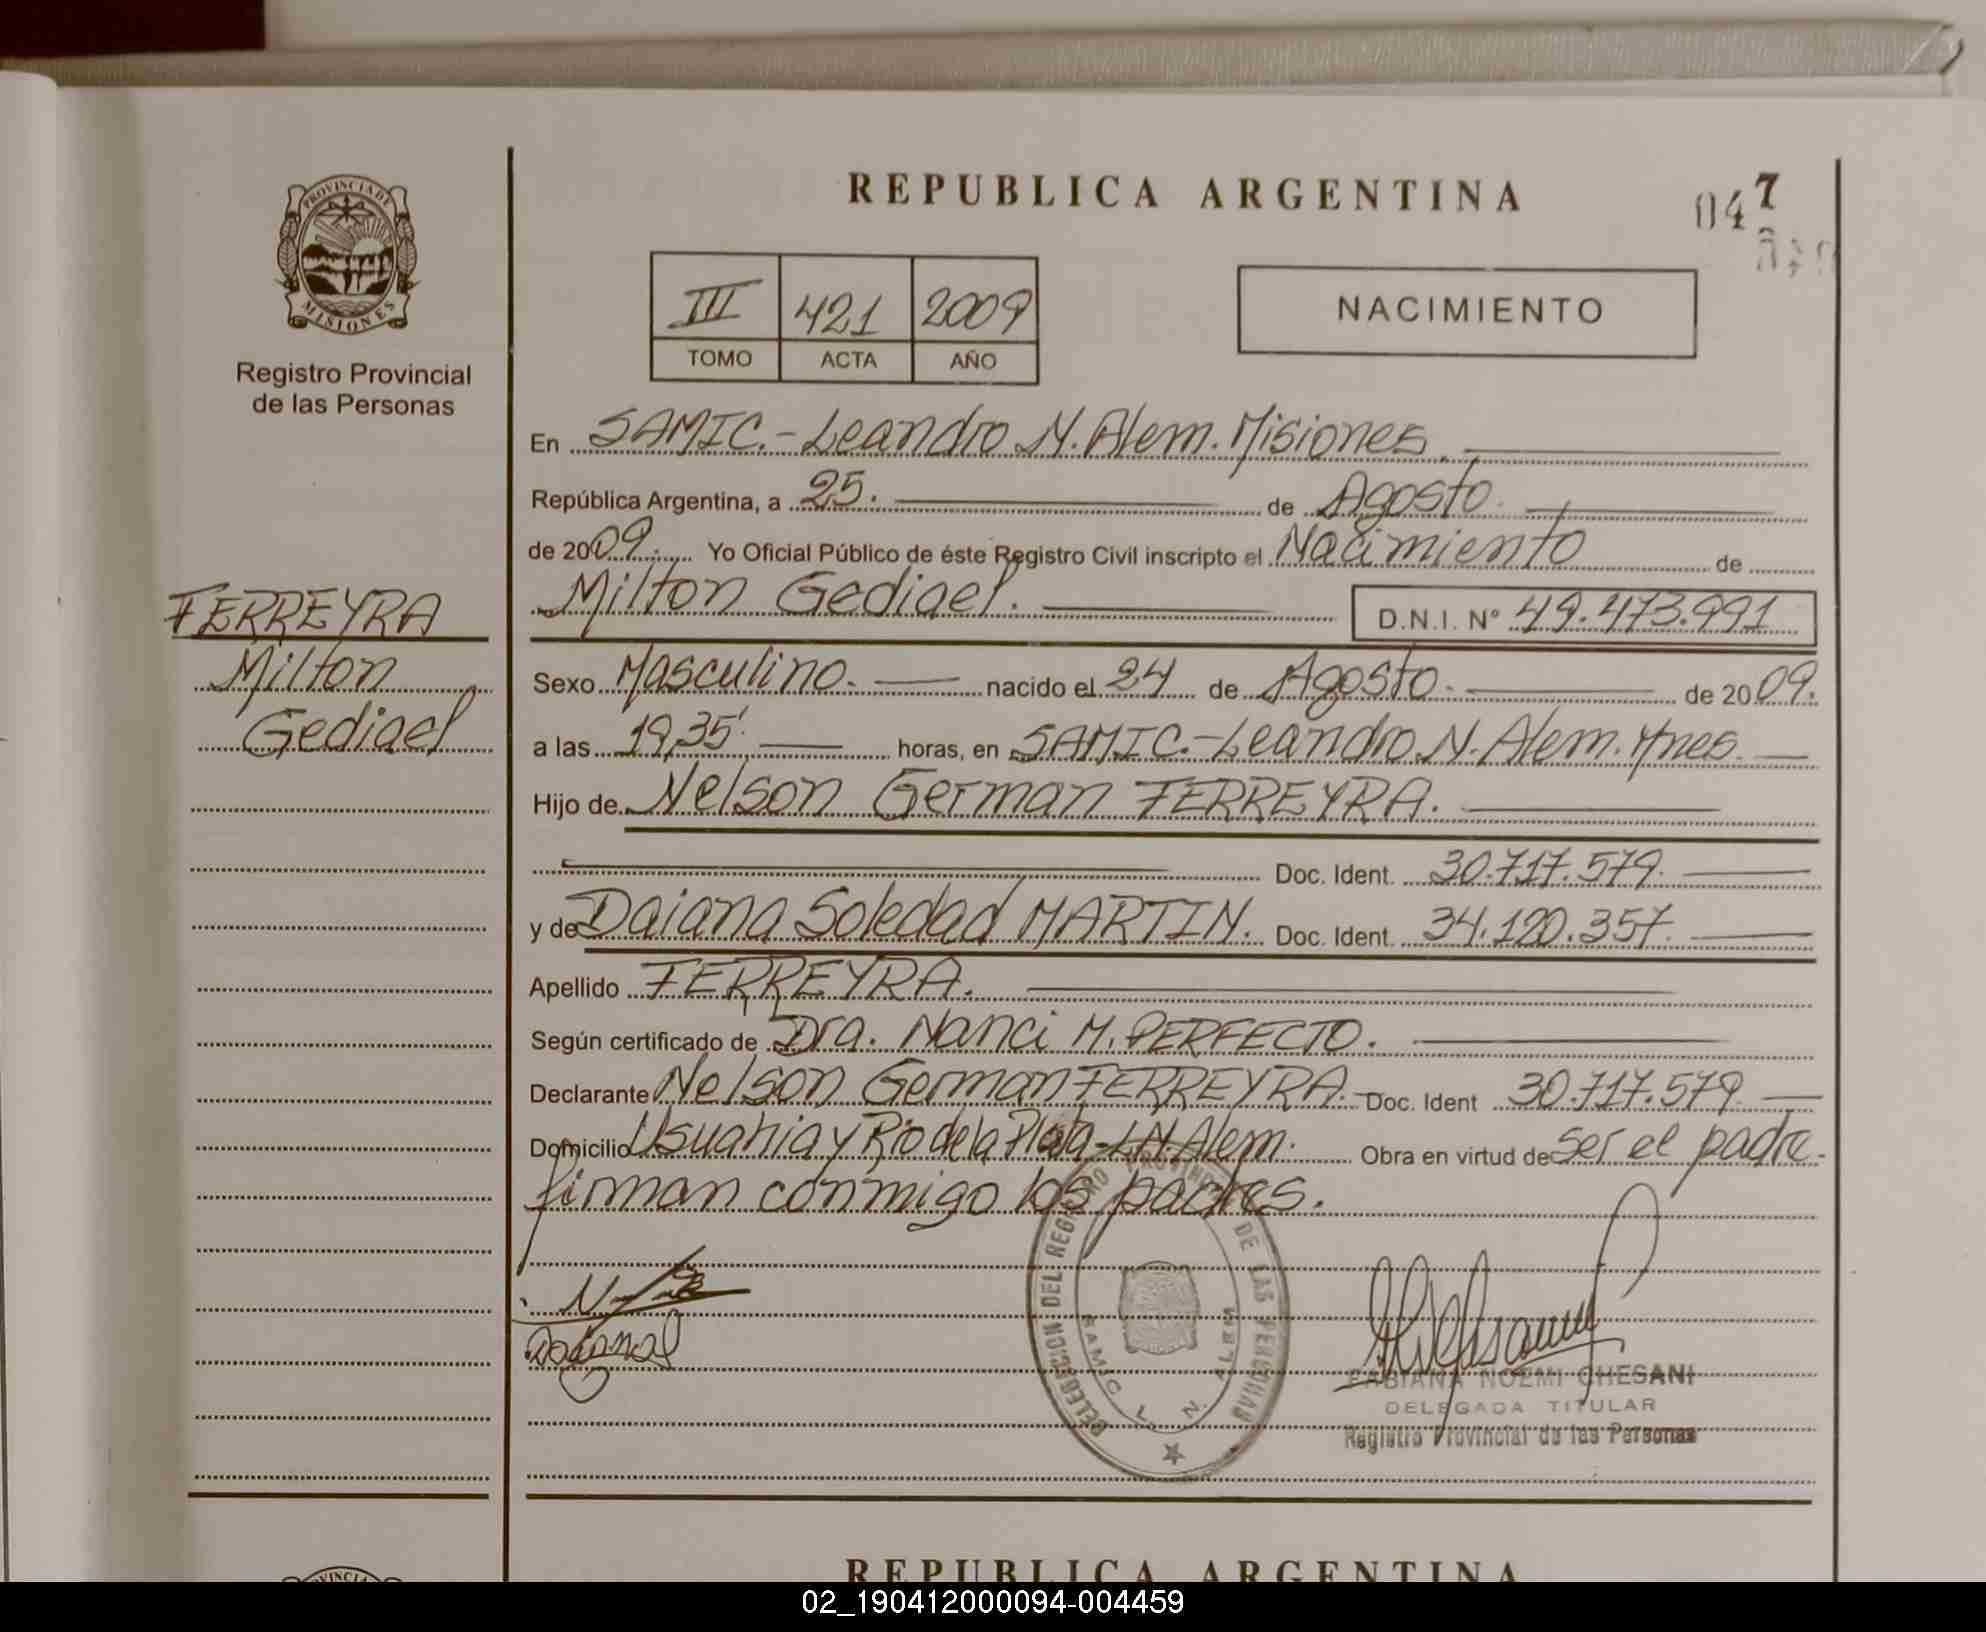 PROVINCIA DE
MISIONES
Registro Provincial
de las Personas
FERREYRA
Milton
Gediael
REPUBLICA ARGENTINA
047
III 421 2009
TOMO ACTA AÑO
NACIMIENTO
En SAMIC.-Leandro N. Alem. Misiones.
República Argentina, a 25. de Agosto.
de 2009. Yo Oficial Público de éste Registro Civil inscripto el Nacimiento de
Milton Gediael. D.N.I. Nº 49.473.991
Sexo Masculino. nacido el 24 de Agosto. de 2009.
a las 19,35' horas, en SAMIC.-Leandro N. Alem. Mnes.
Hijo de Nelson German FERREYRA.
Doc. Ident. 30.717.579.
y de Daiana Soledad MARTIN. Doc. Ident. 34.120.357.
Apellido FERREYRA.
Según certificado de Dra. Nanci M. PERFECTO.
Declarante Nelson German FERREYRA.- Doc. Ident 30.717.579
Domicilio Usuahia y Rio de la Plata-L.N.Alem. Obra en virtud de ser el padre.
firman conmigo los padres.
DELEGACION DEL REGISTRO PROVINCIAL DE LAS PERSONAS
SAMIC L. N. ALEM
FABIANA NOEMI CHESANI
DELEGADA TITULAR
Registro Provincial de las Personas
REPUBLICA ARGENTINA
02_190412000094-004459